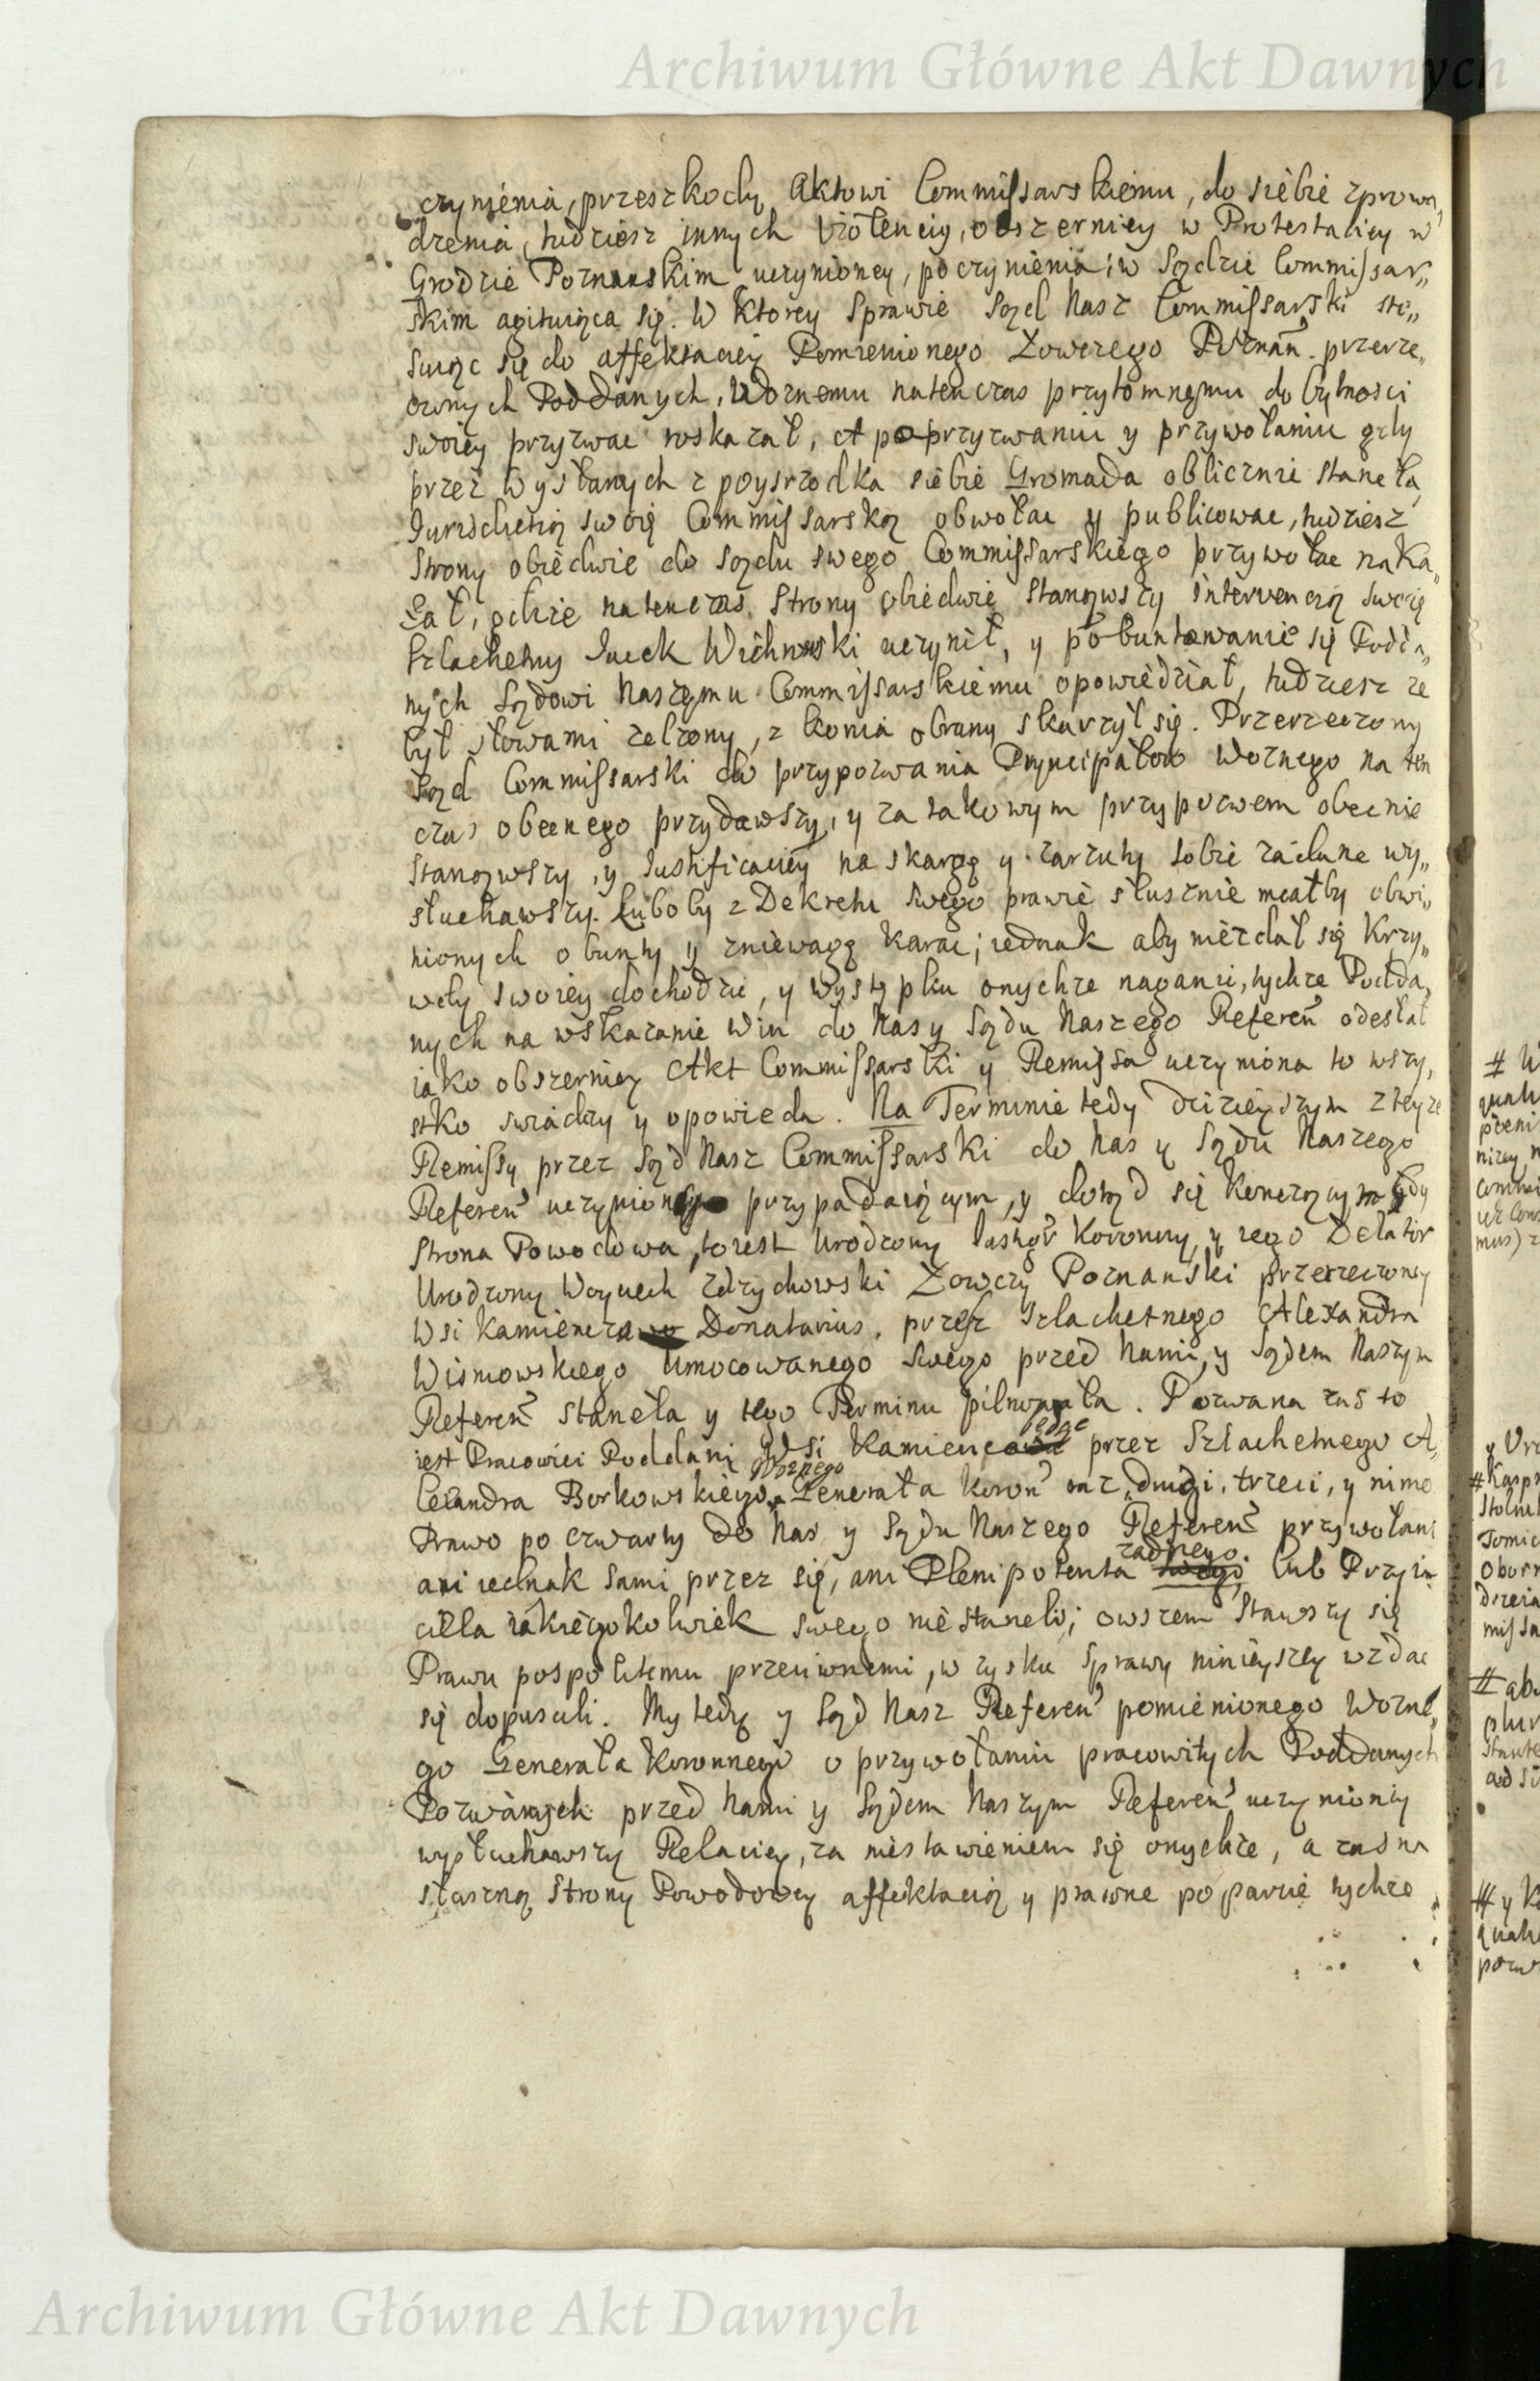 Archiwum Główne Akt Dawnych
czynienia, przeszkody Aktowi Commissarskiemu, do siebie zprowa„
dzenia, tudziesz innych violenciy, obszerniey w Protestaciey w
Grodzie Poznanskim uczynioney, poczynienia; w Sądzie Commissar„
skim agituiąca się. W ktorey Sprawie Sąd Nasz Commissarski sto„
suiąc się do affektaciey Pomienionego Łowczego Poznan. przerze„
czonych Poddanych, Woznemu natenczas przytomnemu do bytnosci
swoiey przyzwac roskazał, A po przyzwaniu y przywołaniu gdy
przez wysłanych z poysrzodka siebie Gromada oblicznie staneła,
Jurisdictią swoię Commissarską obwołac y publicowac, tudziesz
Strony obiedwie do Sądu swego Commissarskiego przywołac naka„
zał, gdzie natenczas Strony obiedwie stanąwszy interwencią swoię
Szlachetny Jacek Wichrowski uczynił, y pobuntowanie się Podda„
nych Sądowi Naszemu Commissarskiemu opowiedział, tudziesz ze
był słowami zelzony, z konia obrany skarzył się. Przerzeczony
Sąd Commissarski do przypozwania Pryncipałow Woznego na ten
czas obecnego przydawszy, y za takowym przypozwem obecnie
stanąwszy, y Justificaciey na skargę y zarzuty sobie zadane wy„
słuchawszy. Luboby z Dekretu swego prawie słusznie miałby obwi„
nionych o bunty y zniewagę karac; iednak aby niezdał się Krzy„
wdy swoiey dochodzic, y występku onychze naganic, tychze Podda„
nych na wskazanie Win do Nas y Sądu Naszego Referen̄ odesłał
iako obszerniey Akt Commissarski y Remissa uczyniona to wszy„
stko swiadczy y opowieda. Na Terminie tedy dzizieyszym z teyze
Remissy przez Sąd Nasz Commissarski do Nas y Sądu Naszego
Referen̄ uczynioney przypadaiącym, y dotąd się konczącym gdy
Strona Powodowa, toiest Urodzony Instygr̄ Koronny y iego Delator
Urodzony Woyciech Zdzychowski Łowczy Poznanski przerzeczoney
Wsi Kamiencza Donatarius, przez Szlachetnego Alexandra
Wisniowskiego Umocowanego swego przed Nami, y Sądem Naszym
Referen̄ staneła y tego Terminu pilnowała. Pozwana zas to
iest Pracowici Poddani Wsi Kamienca będąc przez Szlachetnego A„
lexandra Borkowskiego Woznego Generała Koron̄ raz, drugi, trzeci, y nimo
Prawo po czwarty do Nas y Sądu Naszego Referen̄ przywołani
ani iednak sami przez się, ani Plenipotenta zadnego swego lub Przyia
ciela iakiegokolwiek swego nie staneli; owszem stawszy się
Prawu pospolitemu przeciwnemi, w zysku Sprawy ninieyszey wzdac
się dopuscili. My tedy y Sąd Nasz Referen̄ pomienionego Wozne„
go Generała Koronnego o przywołaniu pracowitych Poddanych
Pozwanych przed Nami y Sądem Naszym Referen̄ uczynioney
wysłuchawszy Relaciey, za niestawieniem się onychze, a zas na
słuszną Strony Powodowey affektacią y prawne poparcie tychze
Archiwum Główne Akt Dawnych